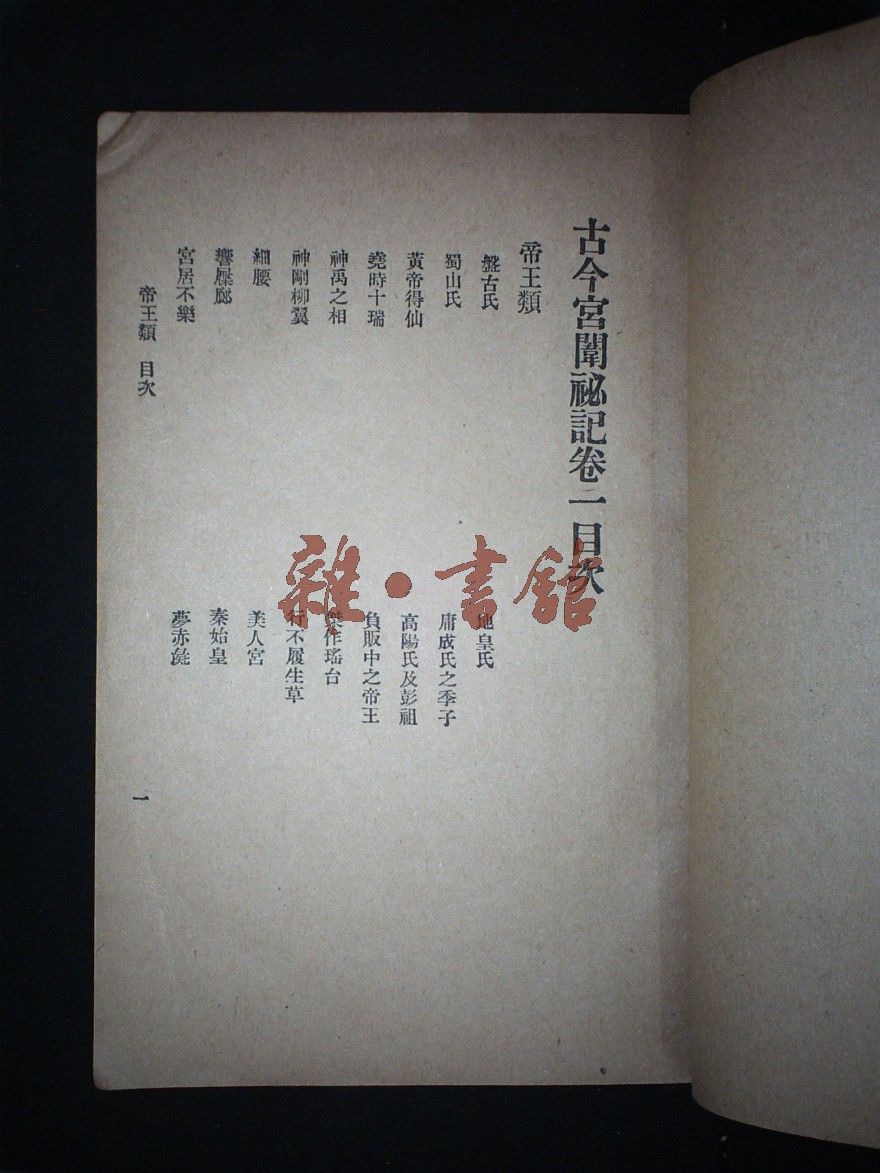 古今宮闈祕記卷一目次
帝王類
盤古氏
地皇氏
蜀山氏
庸成氏之季子
黃帝得仙
高陽氏及彭祖
堯時十瑞
負販中之帝王
神禹之相
桀作瑤台
神剛柳翼
行不履生草
細腰
美人宮
響屧廊
秦始皇
宮居不樂
夢赤龍
帝王類 目次
一
雜·書館